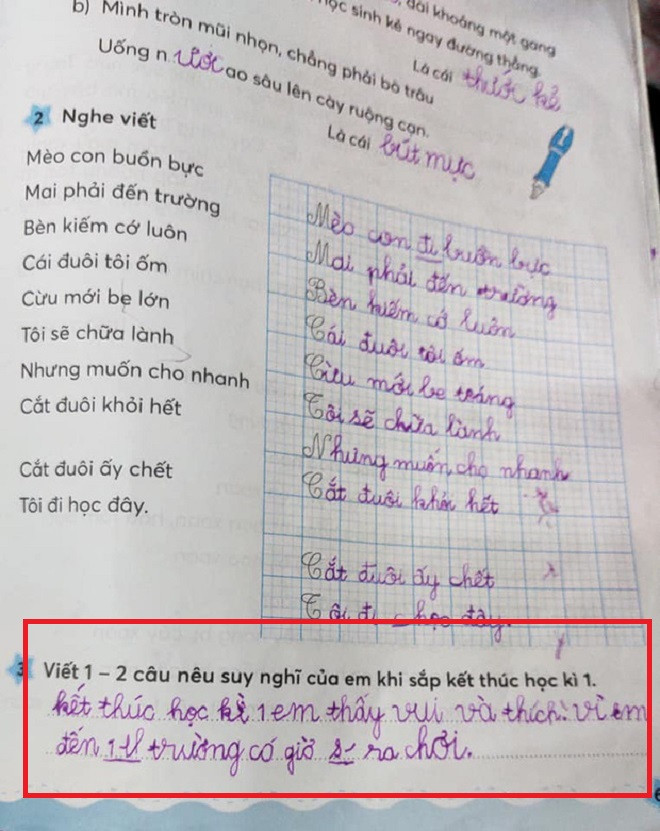 dài khoảng một gang
học sinh kẻ ngay đường thẳng.
Là cái thước kẻ
b) Mình tròn mũi nhọn, chẳng phải bò trâu
Uống nước ao sâu lên cày ruộng cạn.
Là cái bút mực
2 Nghe viết
Mèo con buồn bực
Mai phải đến trường
Bèn kiếm cớ luôn
Cái đuôi tôi ốm
Cừu mới be lớn
Tôi sẽ chữa lành
Nhưng muốn cho nhanh
Cắt đuôi khỏi hết
Cắt đuôi ấy chết
Tôi đi học đây.
Mèo con đi buồn bực
Mai phải đến trường
Bèn kiếm cớ luôn
Cái đuôi tôi ốm
Cừu mới be toáng
Tôi sẽ chữa lành
Những muốn cho nhanh
Cắt đuôi khỏi hết
Cắt đuôi ấy chết
Tôi đi học đây.
3 Viết 1 - 2 câu nêu suy nghĩ của em khi sắp kết thúc học kì 1.
kết thúc học kì 1 em thấy vui và thích vì em
đến trường có giờ ra chơi.